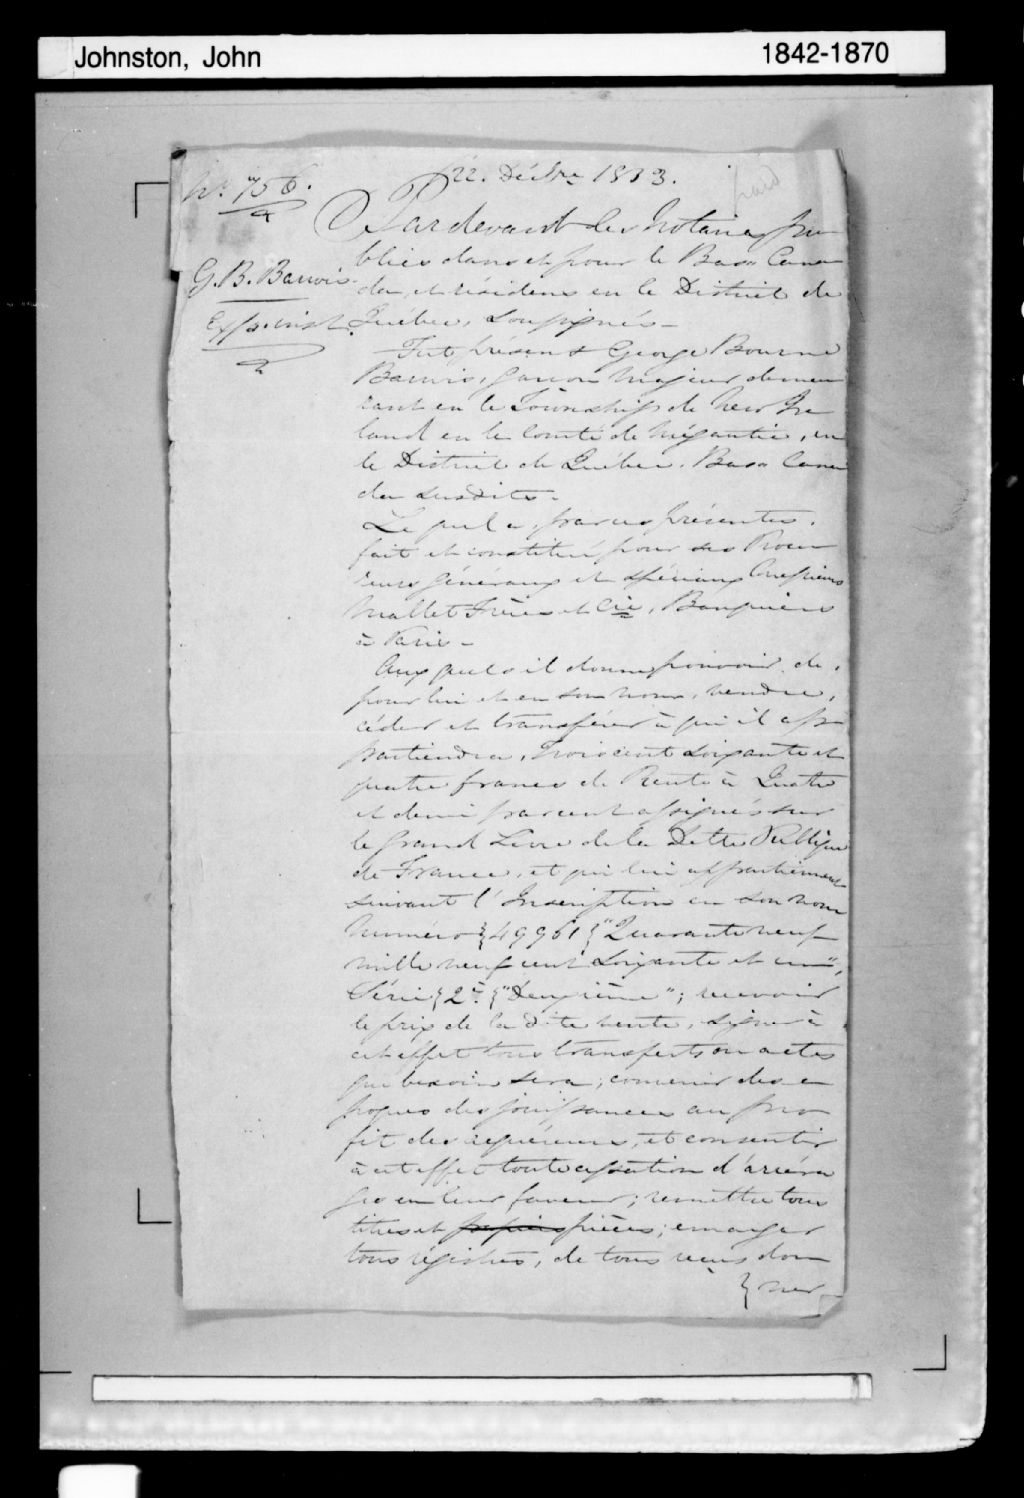 Johnston, John 1842-1870
22. Décbre 1853.
No. 756.
Pardevant les Notaires pu
blics dans et pour le Bas Cana
G. B. Barwis
da, et résidens en le District de
Québec, soussignés —
Fut présent George Bourne
Barwis, garçon majeur demeu
rant en le Township de New Ire
land en le Comté de Mégantic, en
le District de Québec. Bas Cana
da susdits.
Le quel a, par ces présentes,
fait et constitué pour ses Procu
reurs généraux et spéciaux
Mallet Frères et Cie, Banquiers
à Paris —
Aux quels il donne pouvoir de,
pour lui et en son nom, vendre,
céder et transférer à qui il ap
partiendra, trois cent soixante et
quatre francs de Rente à Quatre
et demi par cent assignés sur
le grand Livre de la Dette Publique
de France, et qui lui appartiennent
suivant l'Inscription en son nom
Numéro {49961{ "Quarante neuf
mille neuf cent soixante et un",
Série {2e.{ "Deuxième"; recevoir
le prix de la dite vente, signer à
cet effet tous transferts ou actes
que besoin sera; convenir des é
poques des jouissances au pro
fit des acquéreurs, et consentir
à cet effet toute cession d'arréra
ges en leur faveur; remettre tous
titres et papiers pièces; émarger
tous régistres, de tous reçus don
{ner